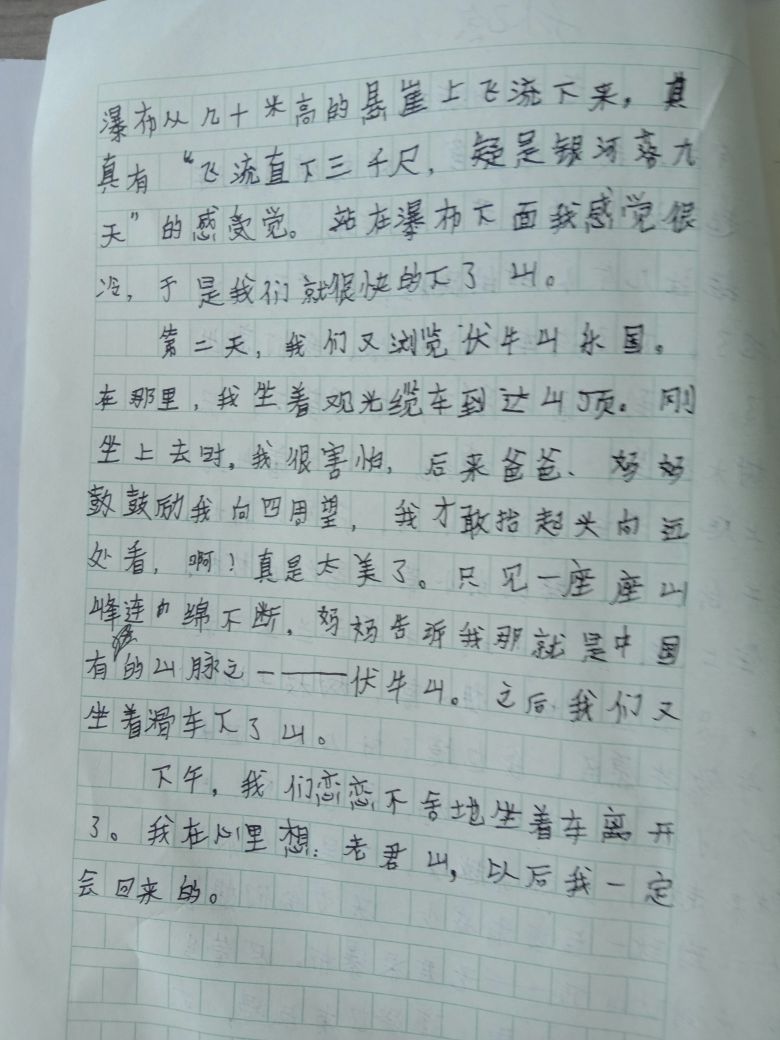 瀑布从几十米高的悬崖上飞流下来，真
真有“飞流直下三千尺，疑是银河落九
天”的感受觉。站在瀑布下面我感觉很
冷，于是我们就很快的下了山。
第二天，我们又浏览伏牛山乐园。
在那里，我坐着观光缆车到达山顶。刚
坐上去时，我很害怕，后来爸爸、妈妈
鼓鼓励我向四周望，我才敢抬起头向远
处看，啊！真是太美了。只见一座座山
峰连绵不断，妈妈告诉我那就是中国
有的山脉之一——伏牛山。之后我们又
坐着滑车下了山。
下午，我们恋恋不舍地坐着车离开
了。我在心里想：老君山，以后我一定
会回来的。